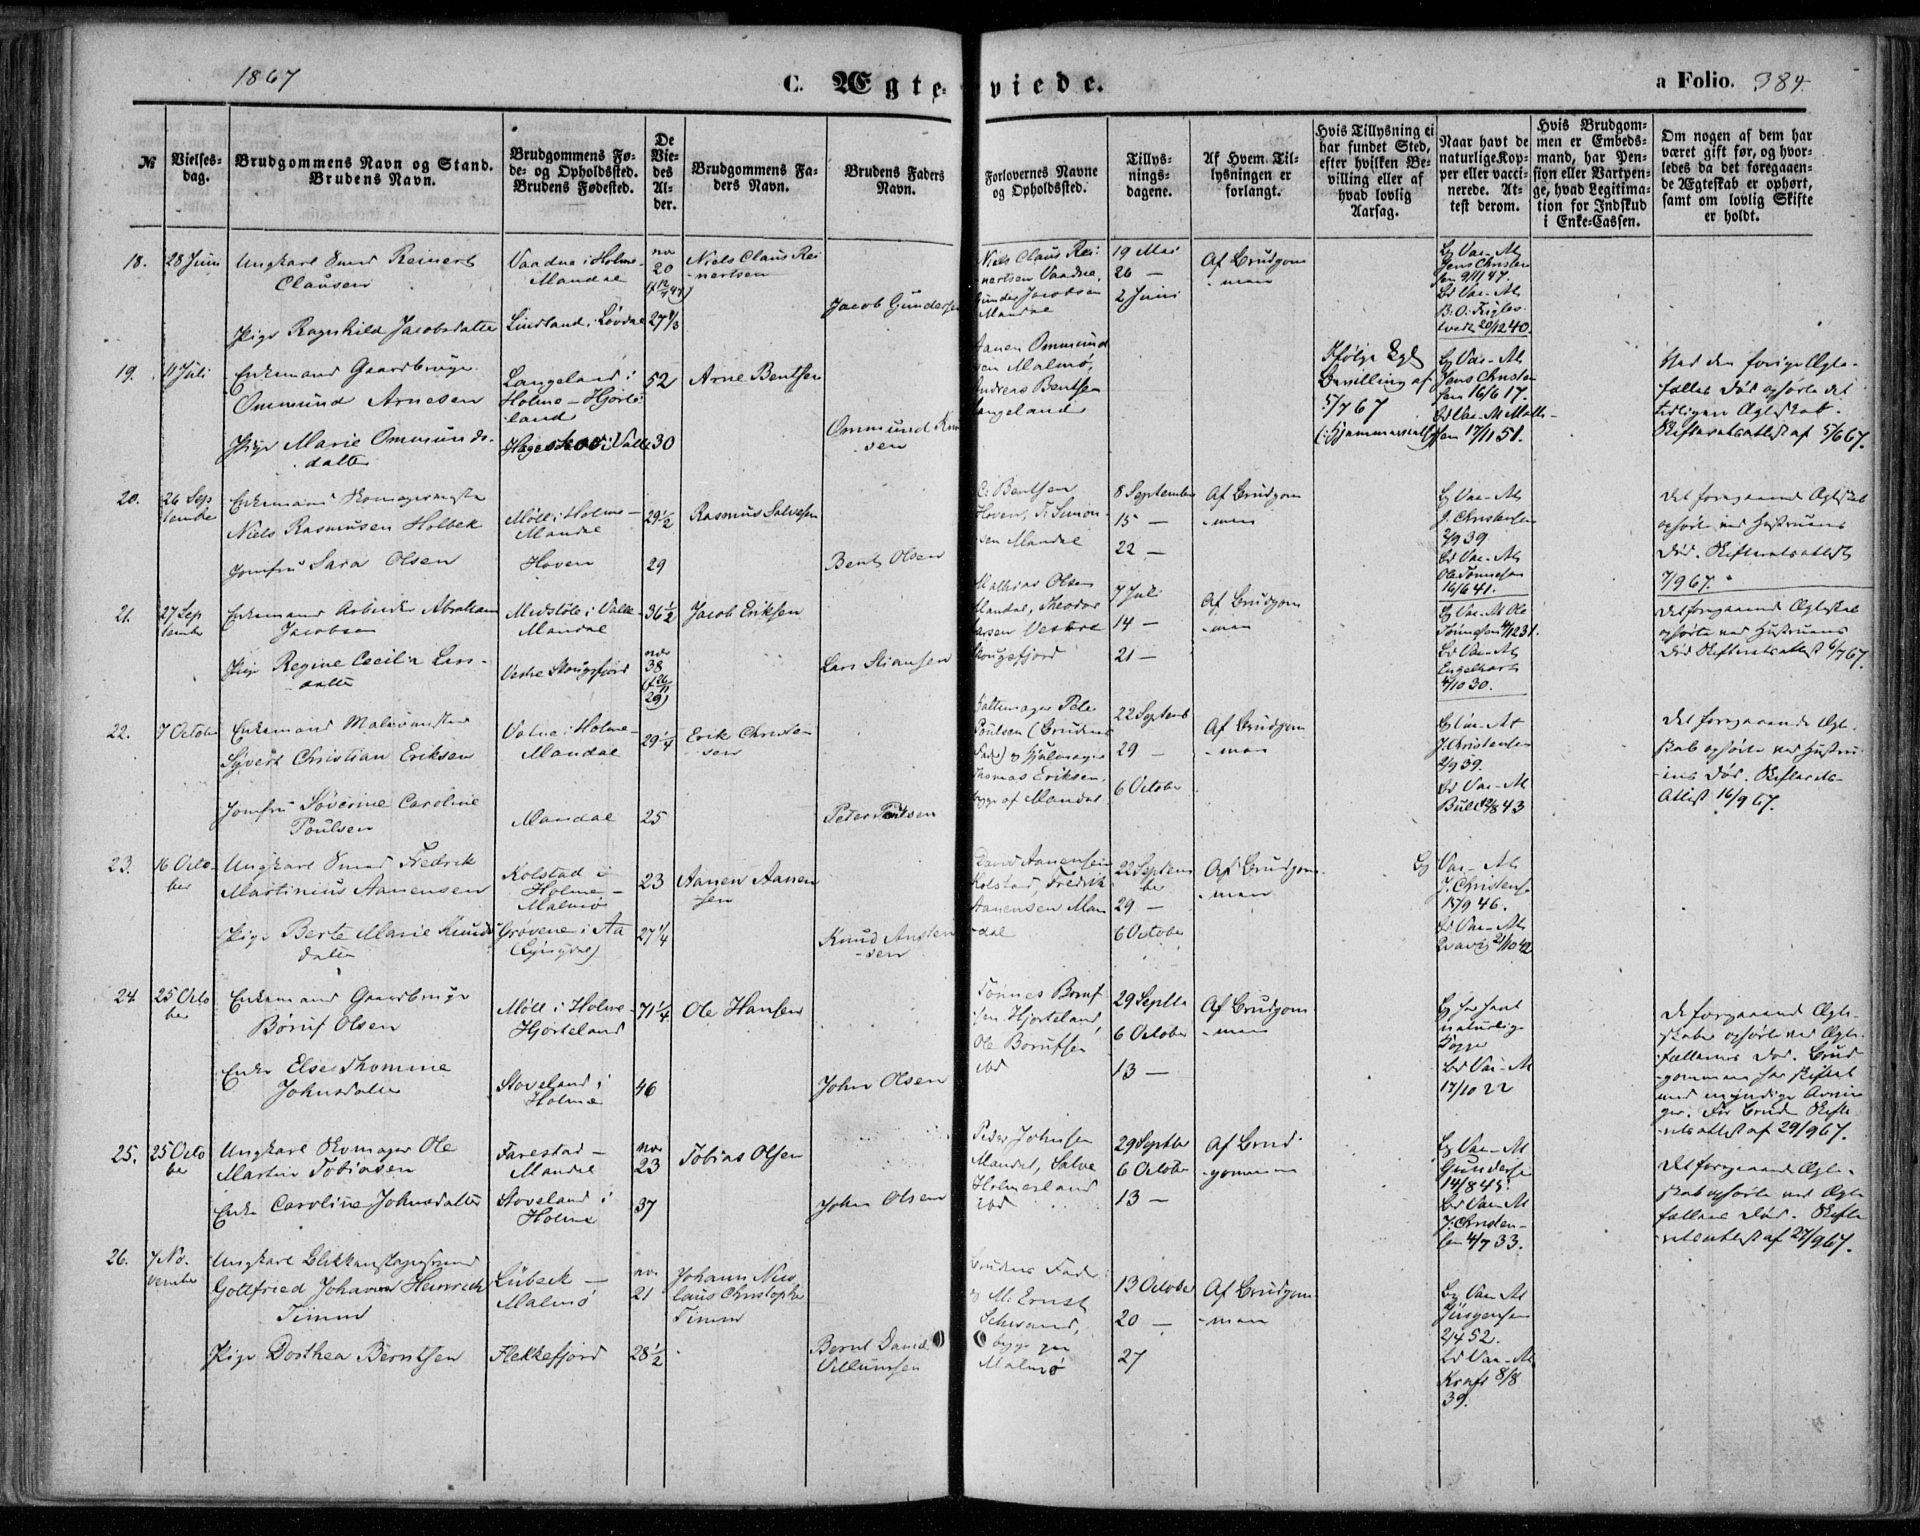 1867
C. Ægteviede.
a Folio. 384.
№
Vielses-
dag.
Brudgommens Navn og Stand.
Brudens Navn.
Brudgommens Fø-
de- og Opholdssted.
Brudens Fødested.
De
Vie-
des
Al-
der.
Brudgommens Fa-
ders Navn.
Brudens Faders
Navn.
Forlovernes Navne
og Opholdssted.
Tillys-
nings-
dagene.
Af Hvem Til-
lysningen er
forlangt.
Hvis Tillysning ei
har fundet Sted,
efter hvilken Be-
villing eller af
hvad lovlig
Aarsag.
Naar havt de
naturlige Kop-
per eller vacci-
nerede. At-
test derom.
Hvis Brudgom-
men er Embeds-
mand, har Pen-
sion eller Vartpen-
ge, hvad Legitima-
tion for Indskud
i Enke-Cassen.
Om nogen af dem har
været gift før, og hvor-
ledes da det foregaaen-
de Ægteskab er ophørt,
samt om lovlig Skifte
er holdt.
18.
28 Juni
Ungkarl Smed Reinert
Clausen
Pige Ragnhild Jacobsdatter
Vaadne i Holme-
Mandal
Lindland i Løvdal
20
27 1/3
Niels Claus Rei-
nertsen
Jacob Gundersen
Niels Claus Rei-
nertsen Vaadne,
Gunder Jacobsen
Mandal
19 Mai
26 —
2 Juni
Af Brudgom-
-men
Bg Vac-At.
Jens Christen
sen 9/11 47.
Bd Vac-At.
20/12 40.
19.
11 Juli
Enkemand Gaardbruger
Ommund Arnesen
Pige Marie Ommunds-
datter
Langeland i
Holme - Hjorte-
land
Hageskov i Valle
52
30
Arne Bentsen
Ommund Knu
sen
Aanen Ommund
sen Malmø,
Andreas Bentsen
Langeland
Ifølge Kgl
Bevilling af
5/7 67
Bg Vac-At.
Jens Christen
sen 16/6 17.
17/11 51.
Ved den forrige Ægte-
fælles Død ophørte det
tidligere Ægteskab.
Skifteretsattest af 5/6 67.
20.
26 Sep
tember
Enkemand Skomagermester
Niels Rasmussen Holbek
Jomfru Sara Olsen
Møll i Holme-
Mandal
Hoven
29 1/2
29
Rasmus Salvesen
Bent Olsen
C. Bentsen
Hoven, T. Simon-
sen Mandal
8 September
15 —
22 —
Af Brudgom
-men
Bg Vac-At.
J. Christensen
2/9 39
Bd Vac-At.
Ole Tønnesen
16/6 41.
Det foregaaende Ægteskab
ophørte ved Hustruens
Død. Skifteretsattest
7/9 67.
21.
27 Sep
tember
Enkemand Arbeider Abraham
Jacobsen
Pige Regine Cecilia Lars-
datter
Midstøle i Valle-
Mandal
Vestre Skougsfjord
36 1/2
38
Jacob Eriksen
Lars Stiansen
Mathias Olsen
Mandal, Theodor
Larsen Vestre
Skougsfjord
7 Juli
14 —
21 —
Af Brudgom
-men
Bg Vac-At Ole
Tønnesen 4/12 31.
Bd Vac-At.
Engelhart
4/10 30.
Det foregaaende Ægteskab
ophørte ved Hustruens
Død Skifteretsattest 6/7 67.
22.
7 October
Enkemand Malersvend
Syvert Christian Eriksen
Jomfru Søverine Caroline
Poulsen
Valne i Holme-
Mandal
Mandal
29 1/4
25
Erik Christen
sen
Peter Poulsen
Peter
Poulsen (Brudens
Fader) og Hjulmager
Thomas Eriksen,
begge af Mandal
22 Septemb
29 —
6 October
Af Brudgom
-men
Bg Vac-At
J. Christensen
2/9 39.
Bd Vac-At
Bull 12/8 43
Det foregaaende Ægte-
skab ophørte ved Hustru-
ens Død. Skifterets-
Attest 16/9 67.
23.
16 Octo-
ber
Ungkarl Smed Fredrik
Martinius Aanensen
Pige Berte Marie Knuds-
datter
Kolstad i
Holme-
Malmø
Grovene i Aa
(Lyngdal)
23
27 1/4
Aanen Aanen
sen
Knud Austen
-sen
David Aanensen
Kolstad, Fredrik
Aanensen Man
-dal
22 Septem
ber
29 —
6 October
Af Brudgom
-men
Bg Vac-At.
J. Christensen
15/9 46.
Bd Vac-At.
21/10 42
24
25 Octo
ber
Enkemand Gaardbruger
Børuf Olsen
Enke Else Thomine
Johnsdatter
Møll i Holme-
Hjorteland
Stoveland i
Holme
71 1/4
46
Ole Hansen
John Olsen
Tønnes Børuf
sen Hjorteland,
Ole Børufsen
ibd
29 Septbr
6 October
13 —
Af Brudgom
-men
Bg har havt
naturlige
Kopper
Bd Vac-At
17/10 22
De foregaaende Ægte-
skaber ophørte ved Ægte-
fællernes Død. Brud
gommen har skiftet
med myndige Arvin
ger. For Brud Skifte
retsattest af 29/9 67.
25.
25 Octo
ber
Ungkarl Skomager Ole
Martin Tobiasen
Enke Caroline Johnsdatter
Farestad -
Mandal
Stoveland i
Holme
23
37
Tobias Olsen
John Olsen
Peder Johnsen
Mandal, Salve
Holmesland
ibd
29 Septbr
6 October
13 —
Af Brud
gommen
Bg Vac-At
Gundersen
14/8 45.
Bd Vac-At
J. Christen-
sen 4/7 33.
Det foregaaende Ægte-
skab ophørte ved Ægte
fællens Død. Skifte
retsattest af 27/9 67.
26.
7 No-
vember
Ungkarl Blikkenslagersvend
Gottfried Johannes Heinrich
Timm
Pige Dorthea Berntsen
Lübeck -
Malmø
Flekkefjord
21
28 1/2
Johann Nico
laus Christopher
Timm
Bernt David
Villumsen
Brudens Fader
og M. Ernst
Schwand,
begge paa
Malmø
13 October
20 —
27
Af Brudgom
-men
Bg Vac-At
Jürgensen
2/4 52.
Bd Vac-At
Kraft 8/8
39.